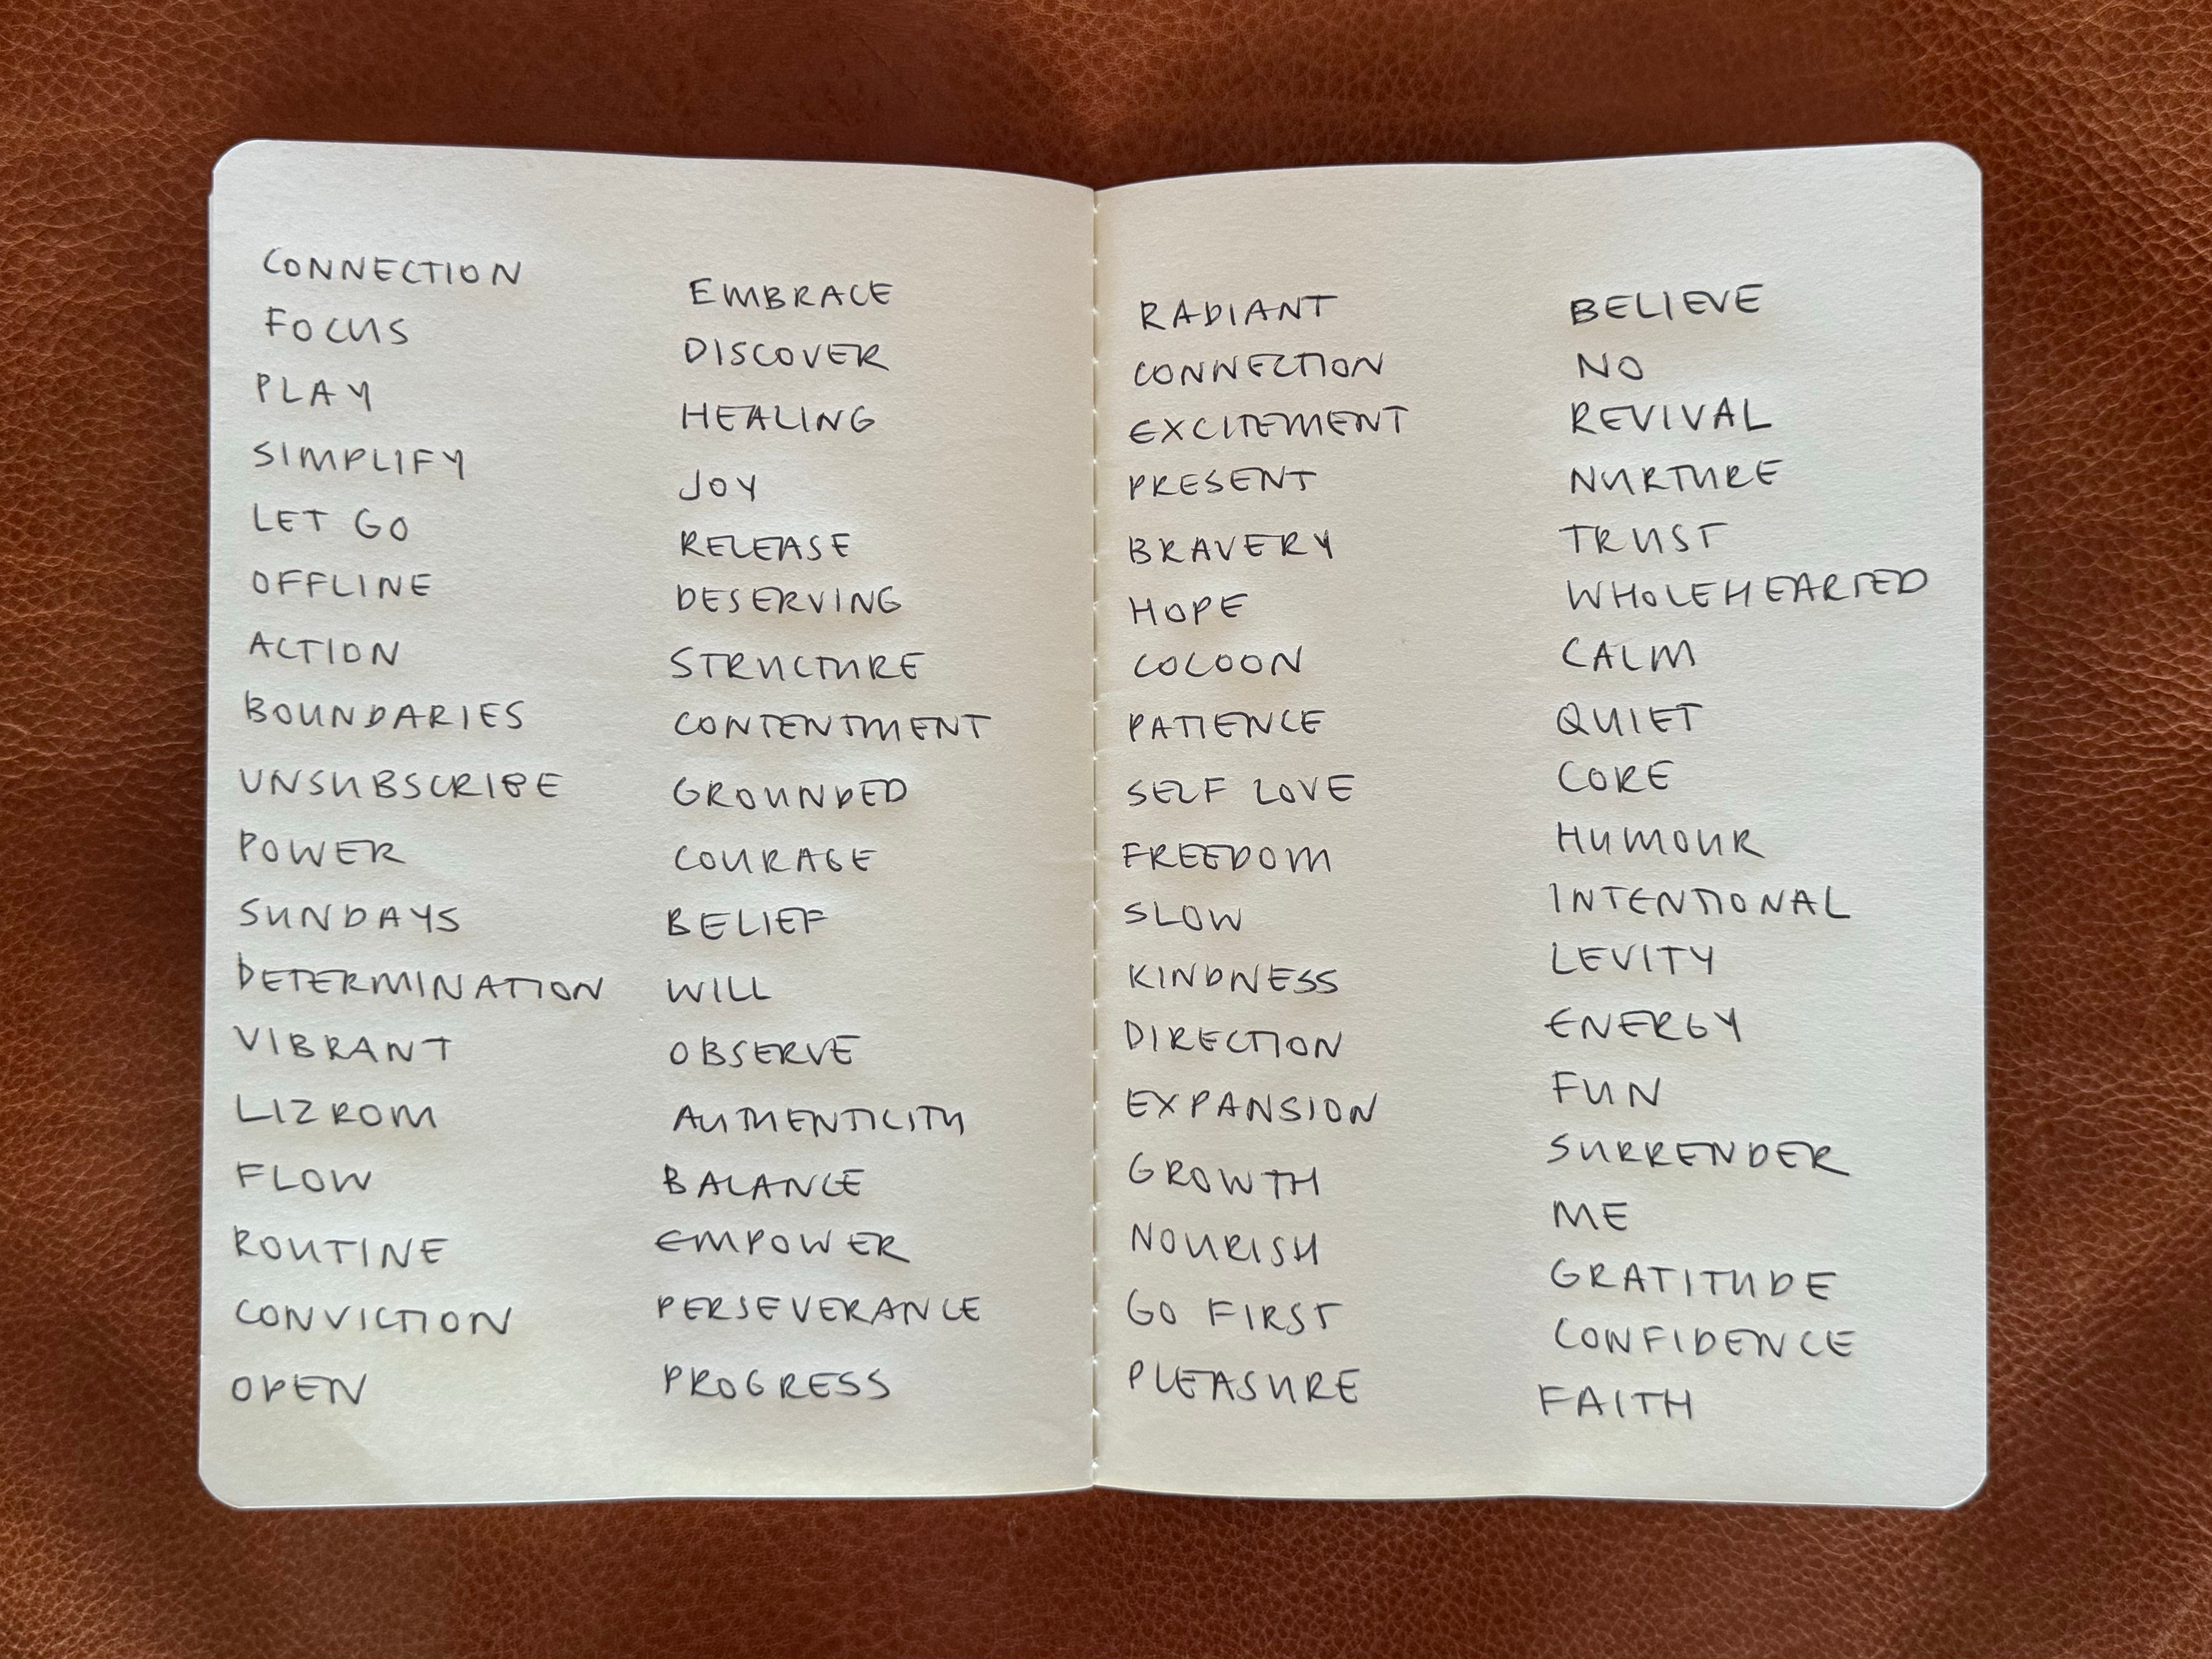 CONNECTION
FOCUS
PLAY
SIMPLIFY
LET GO
OFFLINE
ACTION
BOUNDARIES
UNSUBSCRIBE
POWER
SUNDAYS
DETERMINATION
VIBRANT
LIZROM
FLOW
ROUTINE
CONVICTION
OPEN
EMBRACE
DISCOVER
HEALING
JOY
RELEASE
DESERVING
STRUCTURE
CONTENTMENT
GROUNDED
COURAGE
BELIEF
WILL
OBSERVE
AUTHENTICITY
BALANCE
EMPOWER
PERSEVERANCE
PROGRESS
RADIANT
CONNECTION
EXCITEMENT
PRESENT
BRAVERY
HOPE
COCOON
PATIENCE
SELF LOVE
FREEDOM
SLOW
KINDNESS
DIRECTION
EXPANSION
GROWTH
NOURISH
GO FIRST
PLEASURE
BELIEVE
NO
REVIVAL
NURTURE
TRUST
WHOLEHEARTED
CALM
QUIET
CORE
HUMOUR
INTENTIONAL
LEVITY
ENERGY
FUN
SURRENDER
ME
GRATITUDE
CONFIDENCE
FAITH